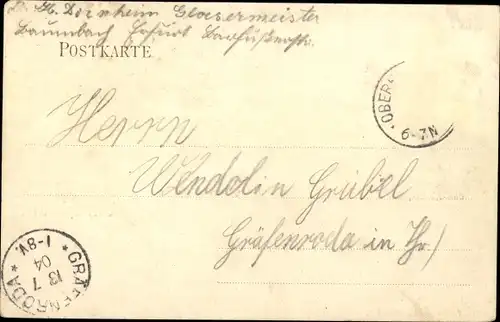 H. Dornheim Glasermeister
Baumbach Erfurt Barfüßerstr.
POSTKARTE
OBER
6-7N
Herrn
Wendolin Grübel
Gräfenroda in Thr.
GRÄFENRODA
13 7
04
1-8V.